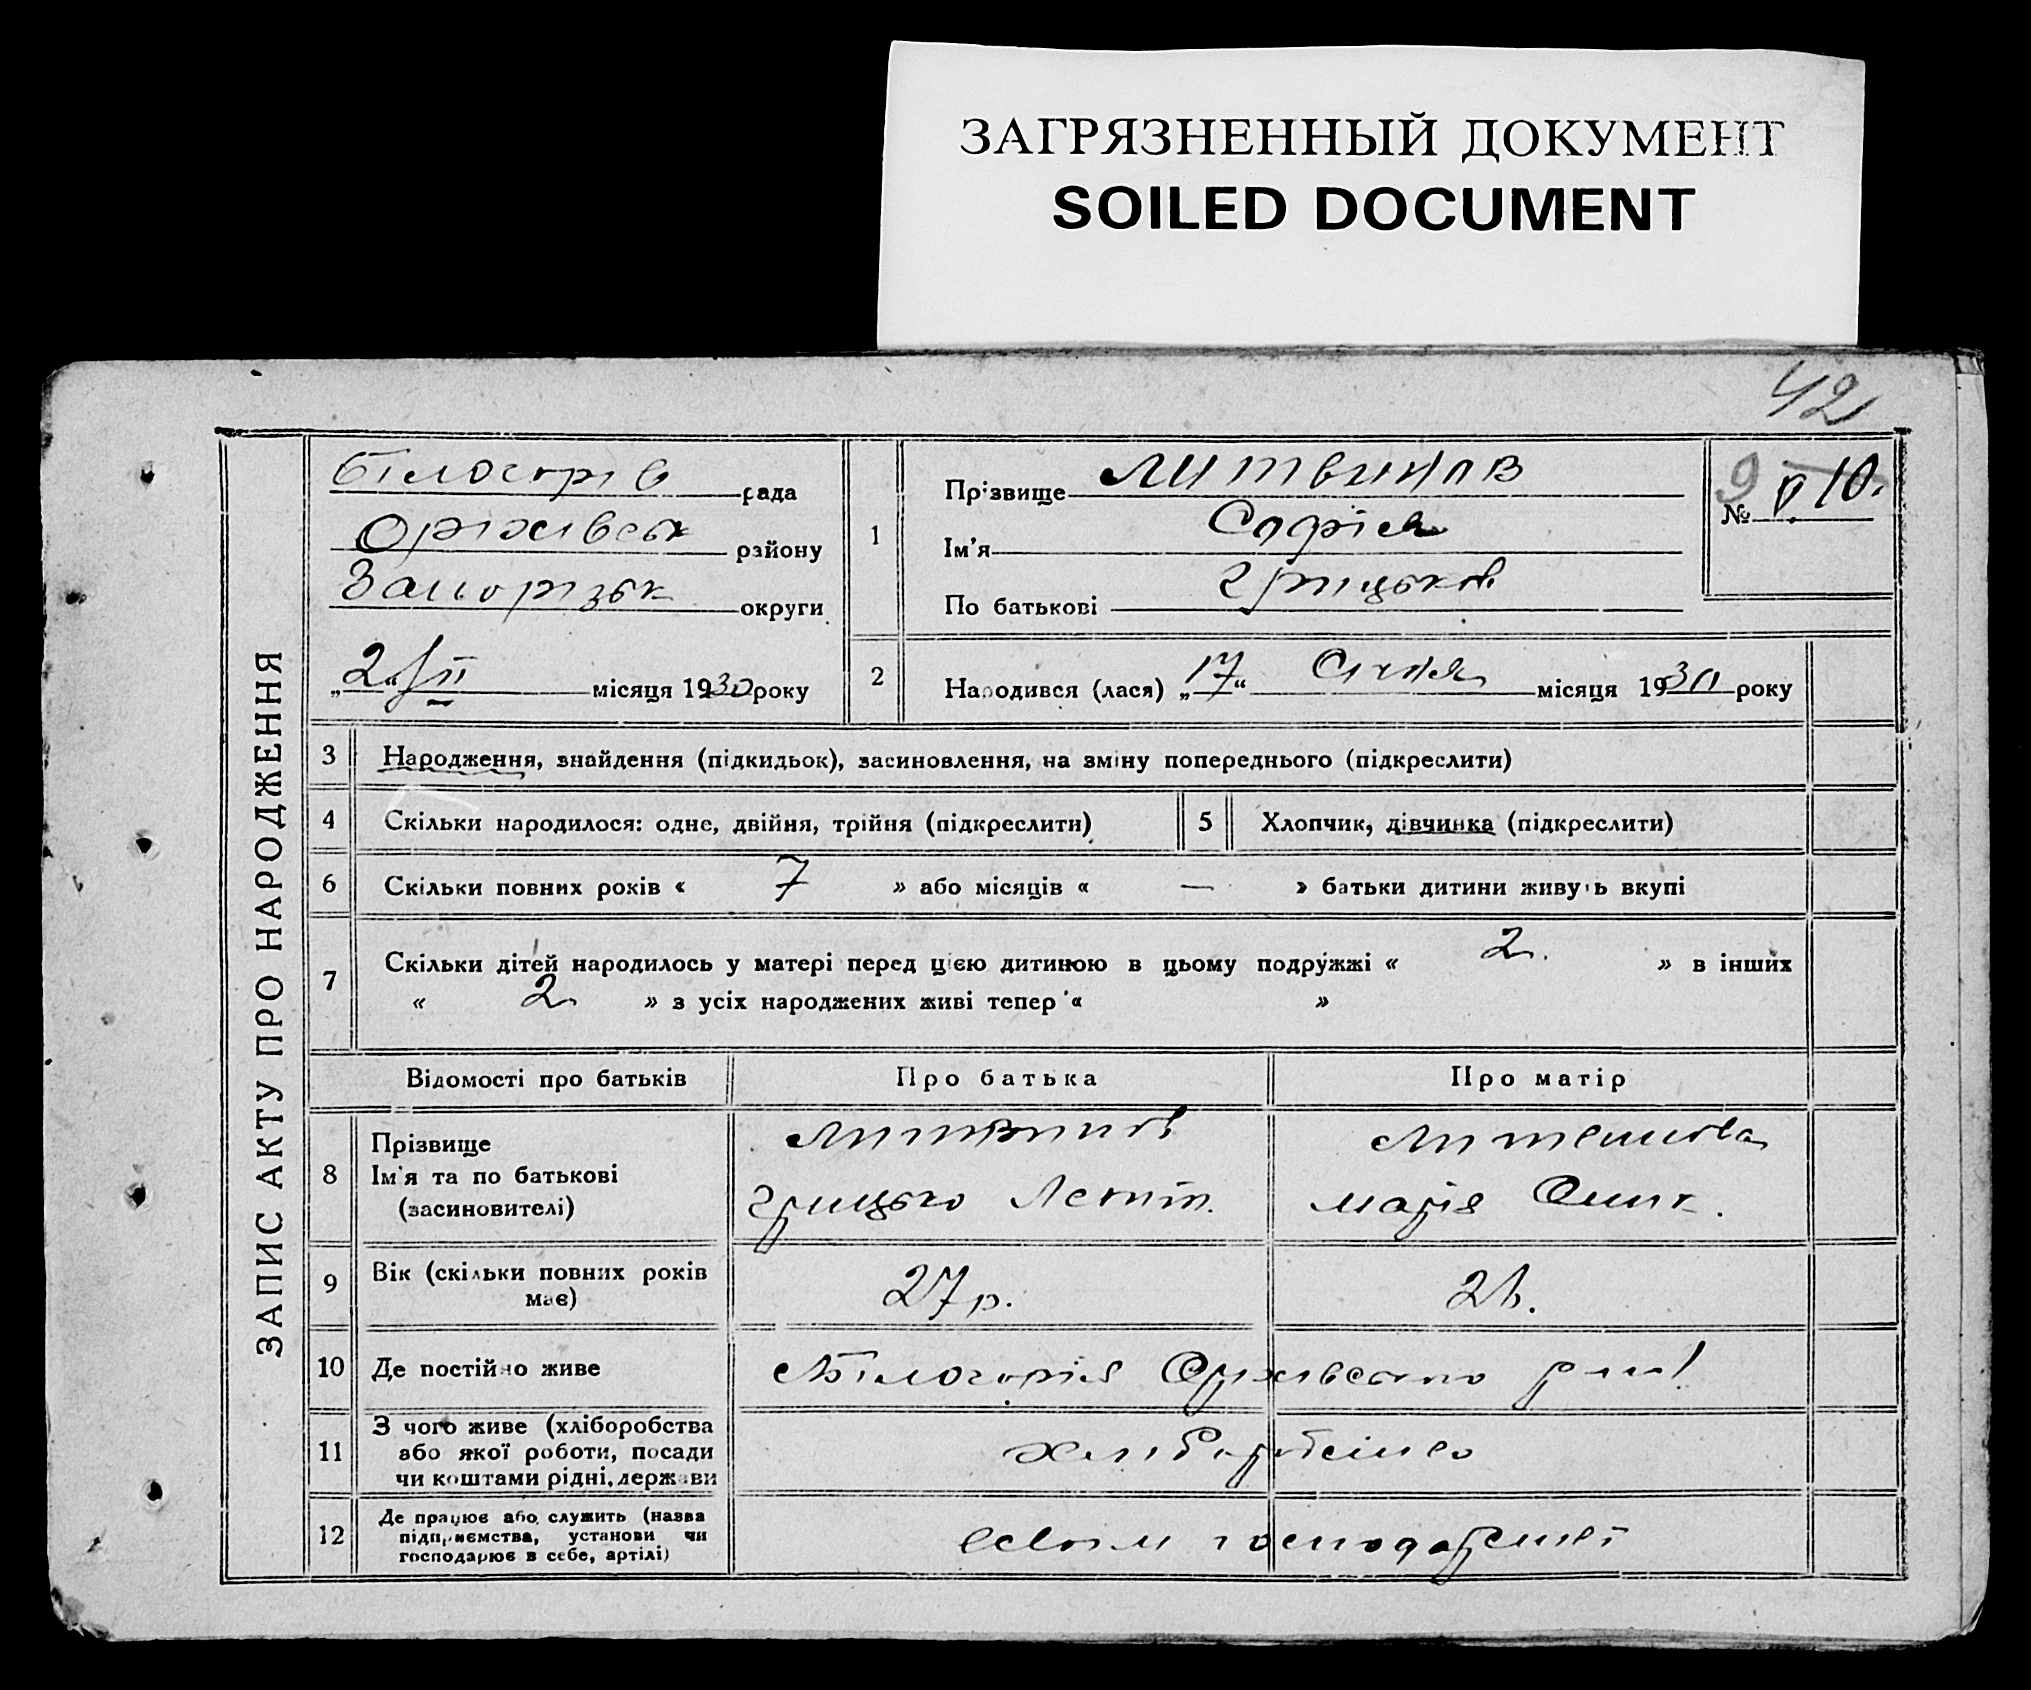 ЗАГРЯЗНЕННЫЙ ДОКУМЕНТ
SOILED DOCUMENT
42
ЗАПИС АКТУ ПРО НАРОДЖЕННЯ
Білогорів рада
Оріхівськ району
Запорізьк округи
„2“ II місяця 1930 року
1
Прізвище Литвинов
Ім'я Софія
По батькові Грицьков
№ 9 10.
2
Народився (лася) „17“ Січня місяця 1930 року
3 Народження, знайдення (підкидьок), засиновлення, на зміну попереднього (підкреслити)
4 Скільки народилося: одне, двійня, трійня (підкреслити)
5 Хлопчик, дівчинка (підкреслити)
6 Скільки повних років « 7 » або місяців « — » батьки дитини живуть вкупі
7 Скільки дітей народилось у матері перед цією дитиною в цьому подружжі « 2. » в інших
« 2 » з усіх народжених живі тепер « »
Відомості про батьків Про батька Про матір
8 Прізвище
Ім'я та по батькові
(засиновителі)
Литвинов
Грицько
Литвинова
Марія
9 Вік (скільки повних років
має)
27 р. 26.
10 Де постійно живе Білогорія Оріхівського рай
11 З чого живе (хліборобства
або якої роботи, посади
чи коштами рідні, держави
Хліборобство
12 Де працює або служить (назва
підприємства, установи чи
господарює в себе, артілі)
в своїм господарстві